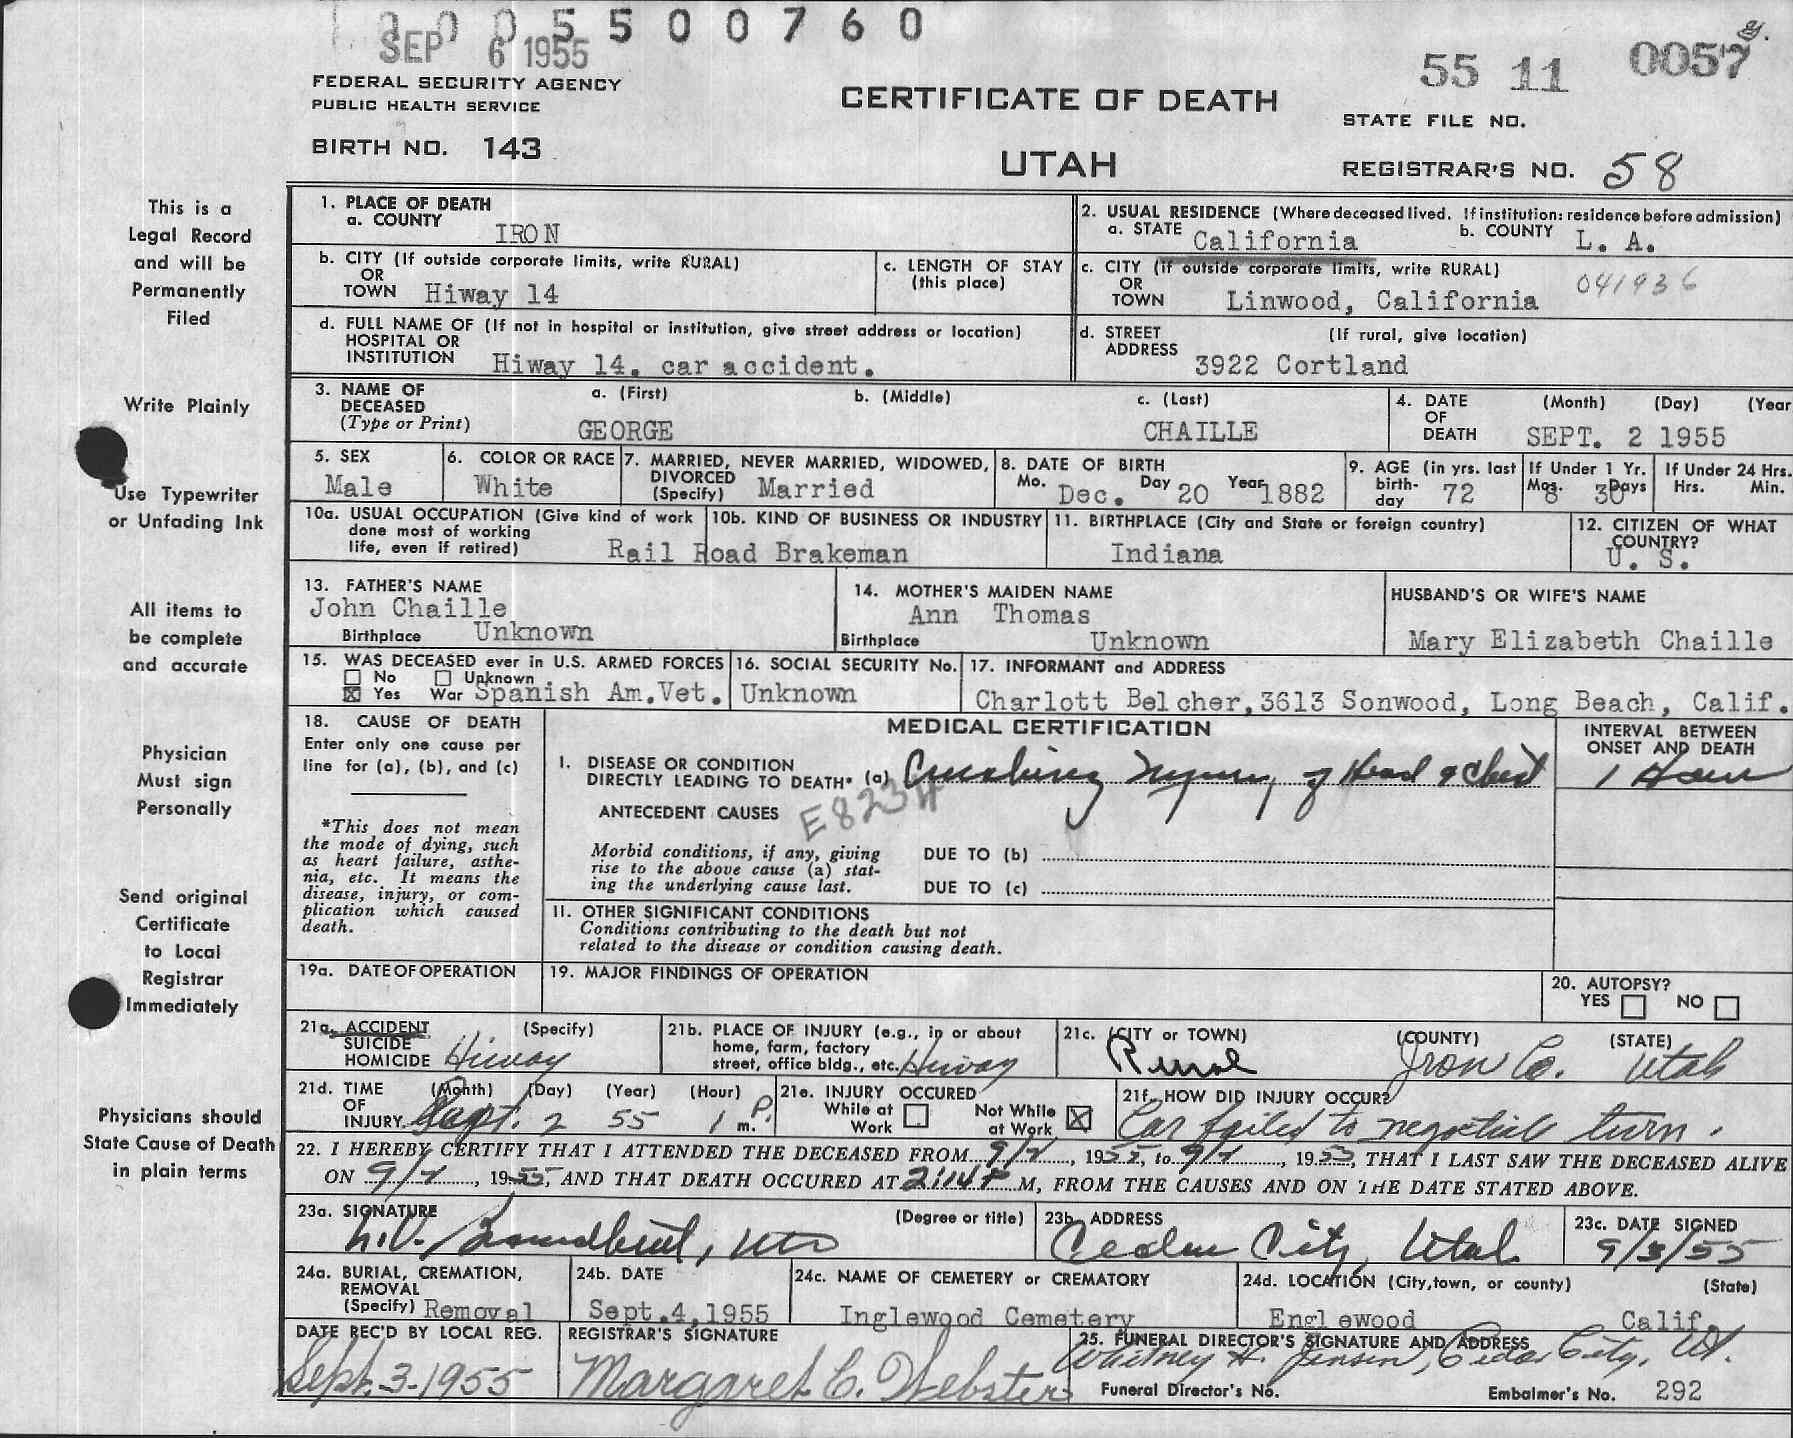 0 0 5 5 0 0 7 6 0
SEP 6 1955
55 11 0057
FEDERAL SECURITY AGENCY
PUBLIC HEALTH SERVICE
CERTIFICATE OF DEATH
STATE FILE NO.
BIRTH NO. 143
UTAH
REGISTRAR'S NO. 58
This is a
Legal Record
and will be
Permanently
Filed
Write Plainly
Use Typewriter
or Unfading Ink
All items to
be complete
and accurate
Physician
Must sign
Personally
Send original
Certificate
to Local
Registrar
Immediately
Physicians should
State Cause of Death
in plain terms
1. PLACE OF DEATH
a. COUNTY IRON
2. USUAL RESIDENCE (Where deceased lived. If institution: residence before admission)
a. STATE California b. COUNTY L. A.
b. CITY (If outside corporate limits, write RURAL)
OR
TOWN Hiway 14
c. LENGTH OF STAY
(this place)
c. CITY (if outside corporate limits, write RURAL) 041936
OR
TOWN Linwood, California
d. FULL NAME OF (If not in hospital or institution, give street address or location)
HOSPITAL OR
INSTITUTION Hiway 14. car accident.
d. STREET (If rural, give location)
ADDRESS 3922 Cortland
3. NAME OF a. (First) b. (Middle) c. (Last)
DECEASED
(Type or Print) GEORGE CHAILLE
4. DATE (Month) (Day) (Year
OF
DEATH SEPT. 2 1955
5. SEX
Male
6. COLOR OR RACE
White
7. MARRIED, NEVER MARRIED, WIDOWED,
DIVORCED
(Specify) Married
8. DATE OF BIRTH
Mo. Dec. Day 20 Year 1882
9. AGE (in yrs. last
birth-
day 72
If Under 1 Yr.
Mos. 8 30 Days
If Under 24 Hrs.
Hrs. Min.
10a. USUAL OCCUPATION (Give kind of work
done most of working
life, even if retired) Rail Road Brakeman
10b. KIND OF BUSINESS OR INDUSTRY
11. BIRTHPLACE (City and State or foreign country)
Indiana
12. CITIZEN OF WHAT
COUNTRY?
U. S.
13. FATHER'S NAME
John Chaille
Birthplace Unknown
14. MOTHER'S MAIDEN NAME
Ann Thomas
Birthplace Unknown
HUSBAND'S OR WIFE'S NAME
Mary Elizabeth Chaille
15. WAS DECEASED ever in U.S. ARMED FORCES
No Unknown
Yes War Spanish Am.Vet.
16. SOCIAL SECURITY No.
Unknown
17. INFORMANT and ADDRESS
Charlott Belcher,3613 Sonwood, Long Beach, Calif.
18. CAUSE OF DEATH
Enter only one cause per
line for (a), (b), and (c)
*This does not mean
the mode of dying, such
as heart failure, asthe-
nia, etc. It means the
disease, injury, or com-
plication which caused
death.
MEDICAL CERTIFICATION
INTERVAL BETWEEN
ONSET AND DEATH
1 Hour
I. DISEASE OR CONDITION
DIRECTLY LEADING TO DEATH* (a) Crushing Injury of Head & Chest
ANTECEDENT CAUSES E8234
Morbid conditions, if any, giving
rise to the above cause (a) stat-
ing the underlying cause last.
DUE TO (b)
DUE TO (c)
II. OTHER SIGNIFICANT CONDITIONS
Conditions contributing to the death but not
related to the disease or condition causing death.
19a. DATE OF OPERATION
19. MAJOR FINDINGS OF OPERATION
20. AUTOPSY?
YES NO
21a. ACCIDENT (Specify)
SUICIDE
HOMICIDE Hiway
21b. PLACE OF INJURY (e.g., in or about
home, farm, factory
street, office bldg., etc. Hiway
21c. (CITY or TOWN) (COUNTY) (STATE)
Rural Iron Co. Utah
21d. TIME (Month) (Day) (Year) (Hour)
OF
INJURY. Sept. 2 55 1 P. m.
21e. INJURY OCCURED
While at Work Not While at Work
21f. HOW DID INJURY OCCUR?
Car failed to negotiate turn.
22. I HEREBY CERTIFY THAT I ATTENDED THE DECEASED FROM 9/2, 1955, to 9/2, 1955, THAT I LAST SAW THE DECEASED ALIVE
ON 9/2, 1955, AND THAT DEATH OCCURED AT 2:14 P M, FROM THE CAUSES AND ON THE DATE STATED ABOVE.
23a. SIGNATURE (Degree or title)
23b. ADDRESS
Cedar City, Utah
23c. DATE SIGNED
9/3/55
24a. BURIAL, CREMATION,
REMOVAL
(Specify) Removal
24b. DATE
Sept.4,1955
24c. NAME OF CEMETERY or CREMATORY
Inglewood Cemetery
24d. LOCATION (City,town, or county) (State)
Englewood Calif.
DATE REC'D BY LOCAL REG.
Sept. 3-1955
REGISTRAR'S SIGNATURE
Margaret C. Webster
25. FUNERAL DIRECTOR'S SIGNATURE AND ADDRESS
Whitney H. Jensen, Cedar City, Ut.
Funeral Director's No. Embalmer's No. 292